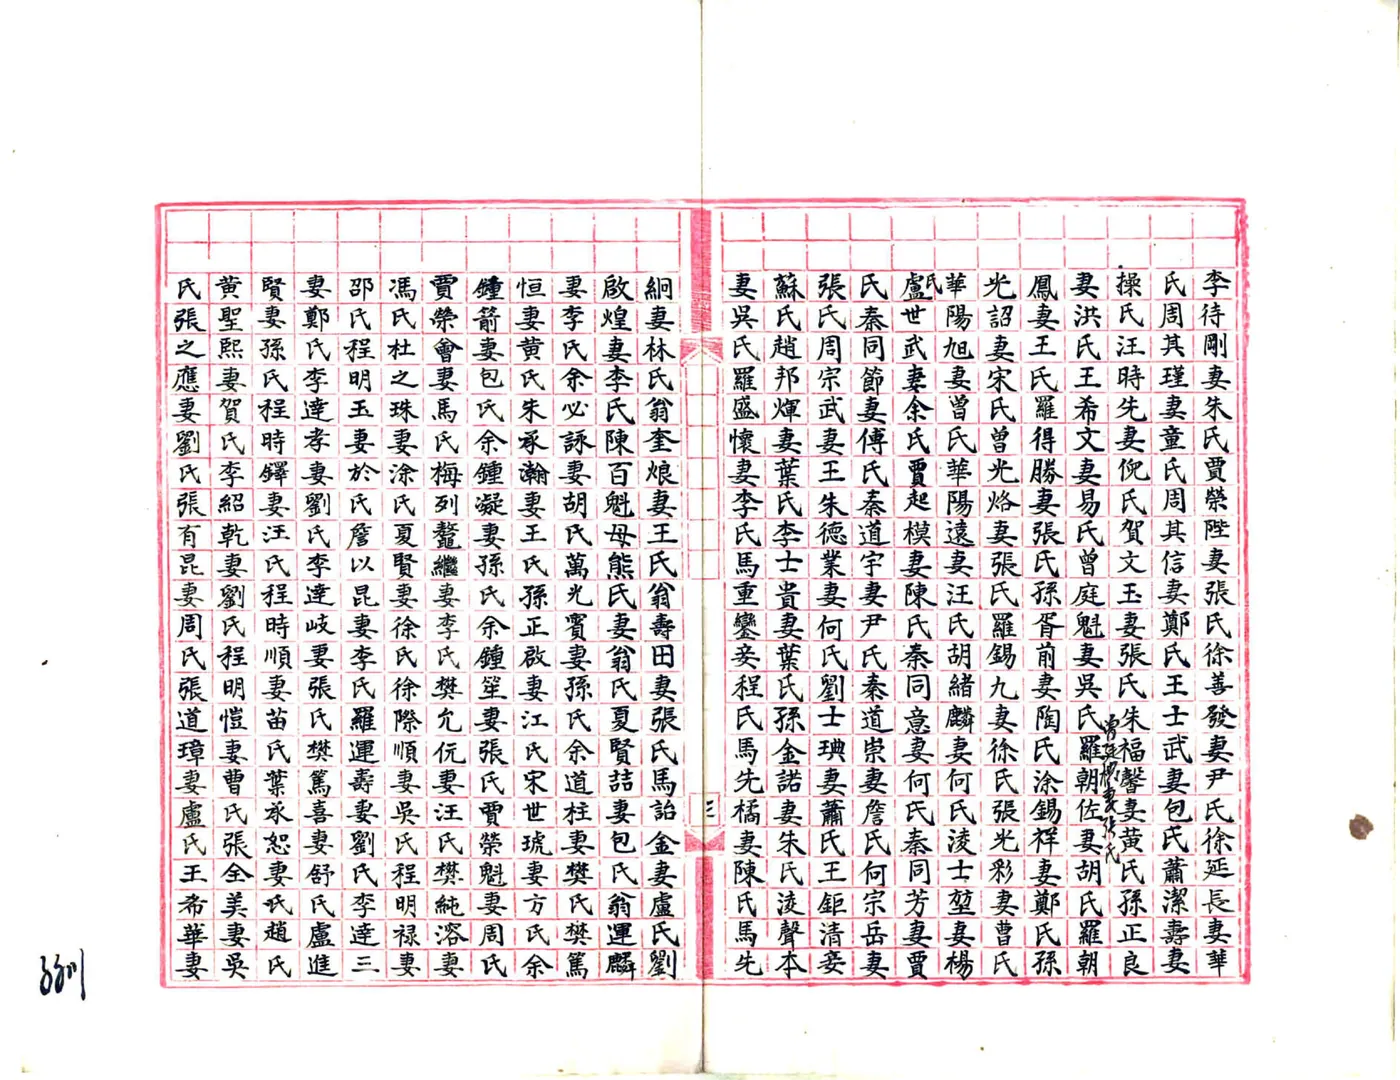 李待剛妻朱氏賈榮陞妻張氏徐善發妻尹氏徐延長妻華
氏周其瑾妻童氏周其信妻鄭氏王士武妻包氏蕭潔壽妻
操氏汪時先妻倪氏賀文玉妻張氏朱福馨妻黃氏孫正良
曾廷楊妻張氏
妻洪氏王希文妻易氏曾庭魁妻吳氏羅朝佐妻胡氏羅朝
鳳妻王氏羅得勝妻張氏孫胥前妻陶氏涂錫祥妻鄭氏孫
光詔妻宋氏曾光烙妻張氏羅錫九妻徐氏張光彩妻曹氏
華陽旭妻曾氏華陽遠妻汪氏胡緒麟妻何氏淩士堃妻楊
氏
盧世武妻余氏賈起模妻陳氏秦同意妻何氏秦同芳妻賈
氏秦同節妻傅氏秦道宇妻尹氏秦道崇妻詹氏何宗岳妻
張氏周宗武妻王朱德業妻何氏劉士琠妻蕭氏王鉅清妾
蘇氏趙邦煇妻葉氏李士貴妻葉氏孫金諾妻朱氏淩聲本
妻吳氏羅盛懷妻李氏馬重鑾妾程氏馬先橘妻陳氏馬先
三
絅妻林氏翁奎烺妻王氏翁壽田妻張氏馬詒金妻盧氏劉
啟煌妻李氏陳百魁母熊氏妻翁氏夏賢喆妻包氏翁運麟
妻李氏余必詠妻胡氏萬光賓妻孫氏余道柱妻樊氏樊篤
恒妻黃氏朱承瀚妻王氏孫正啟妻江氏宋世琥妻方氏余
鍾箭妻包氏余鍾凝妻孫氏余鍾笙妻張氏賈榮魁妻周氏
賈榮會妻馬氏梅列鼇繼妻李氏樊允伉妻汪氏樊純溶妻
馮氏杜之珠妻涂氏夏賢妻徐氏徐際順妻吳氏程明祿妻
邵氏程明玉妻於氏詹以昆妻李氏羅運壽妻劉氏李達三
妻鄭氏李達孝妻劉氏李達岐妻張氏樊篤喜妻舒氏盧進
賢妻孫氏程時鐸妻汪氏程時順妻苗氏葉承恕妻氏趙氏
黃聖熙妻賀氏李紹乾妻劉氏程明愷妻曹氏張全美妻吳
氏張之應妻劉氏張有昆妻周氏張道璋妻盧氏王希華妻